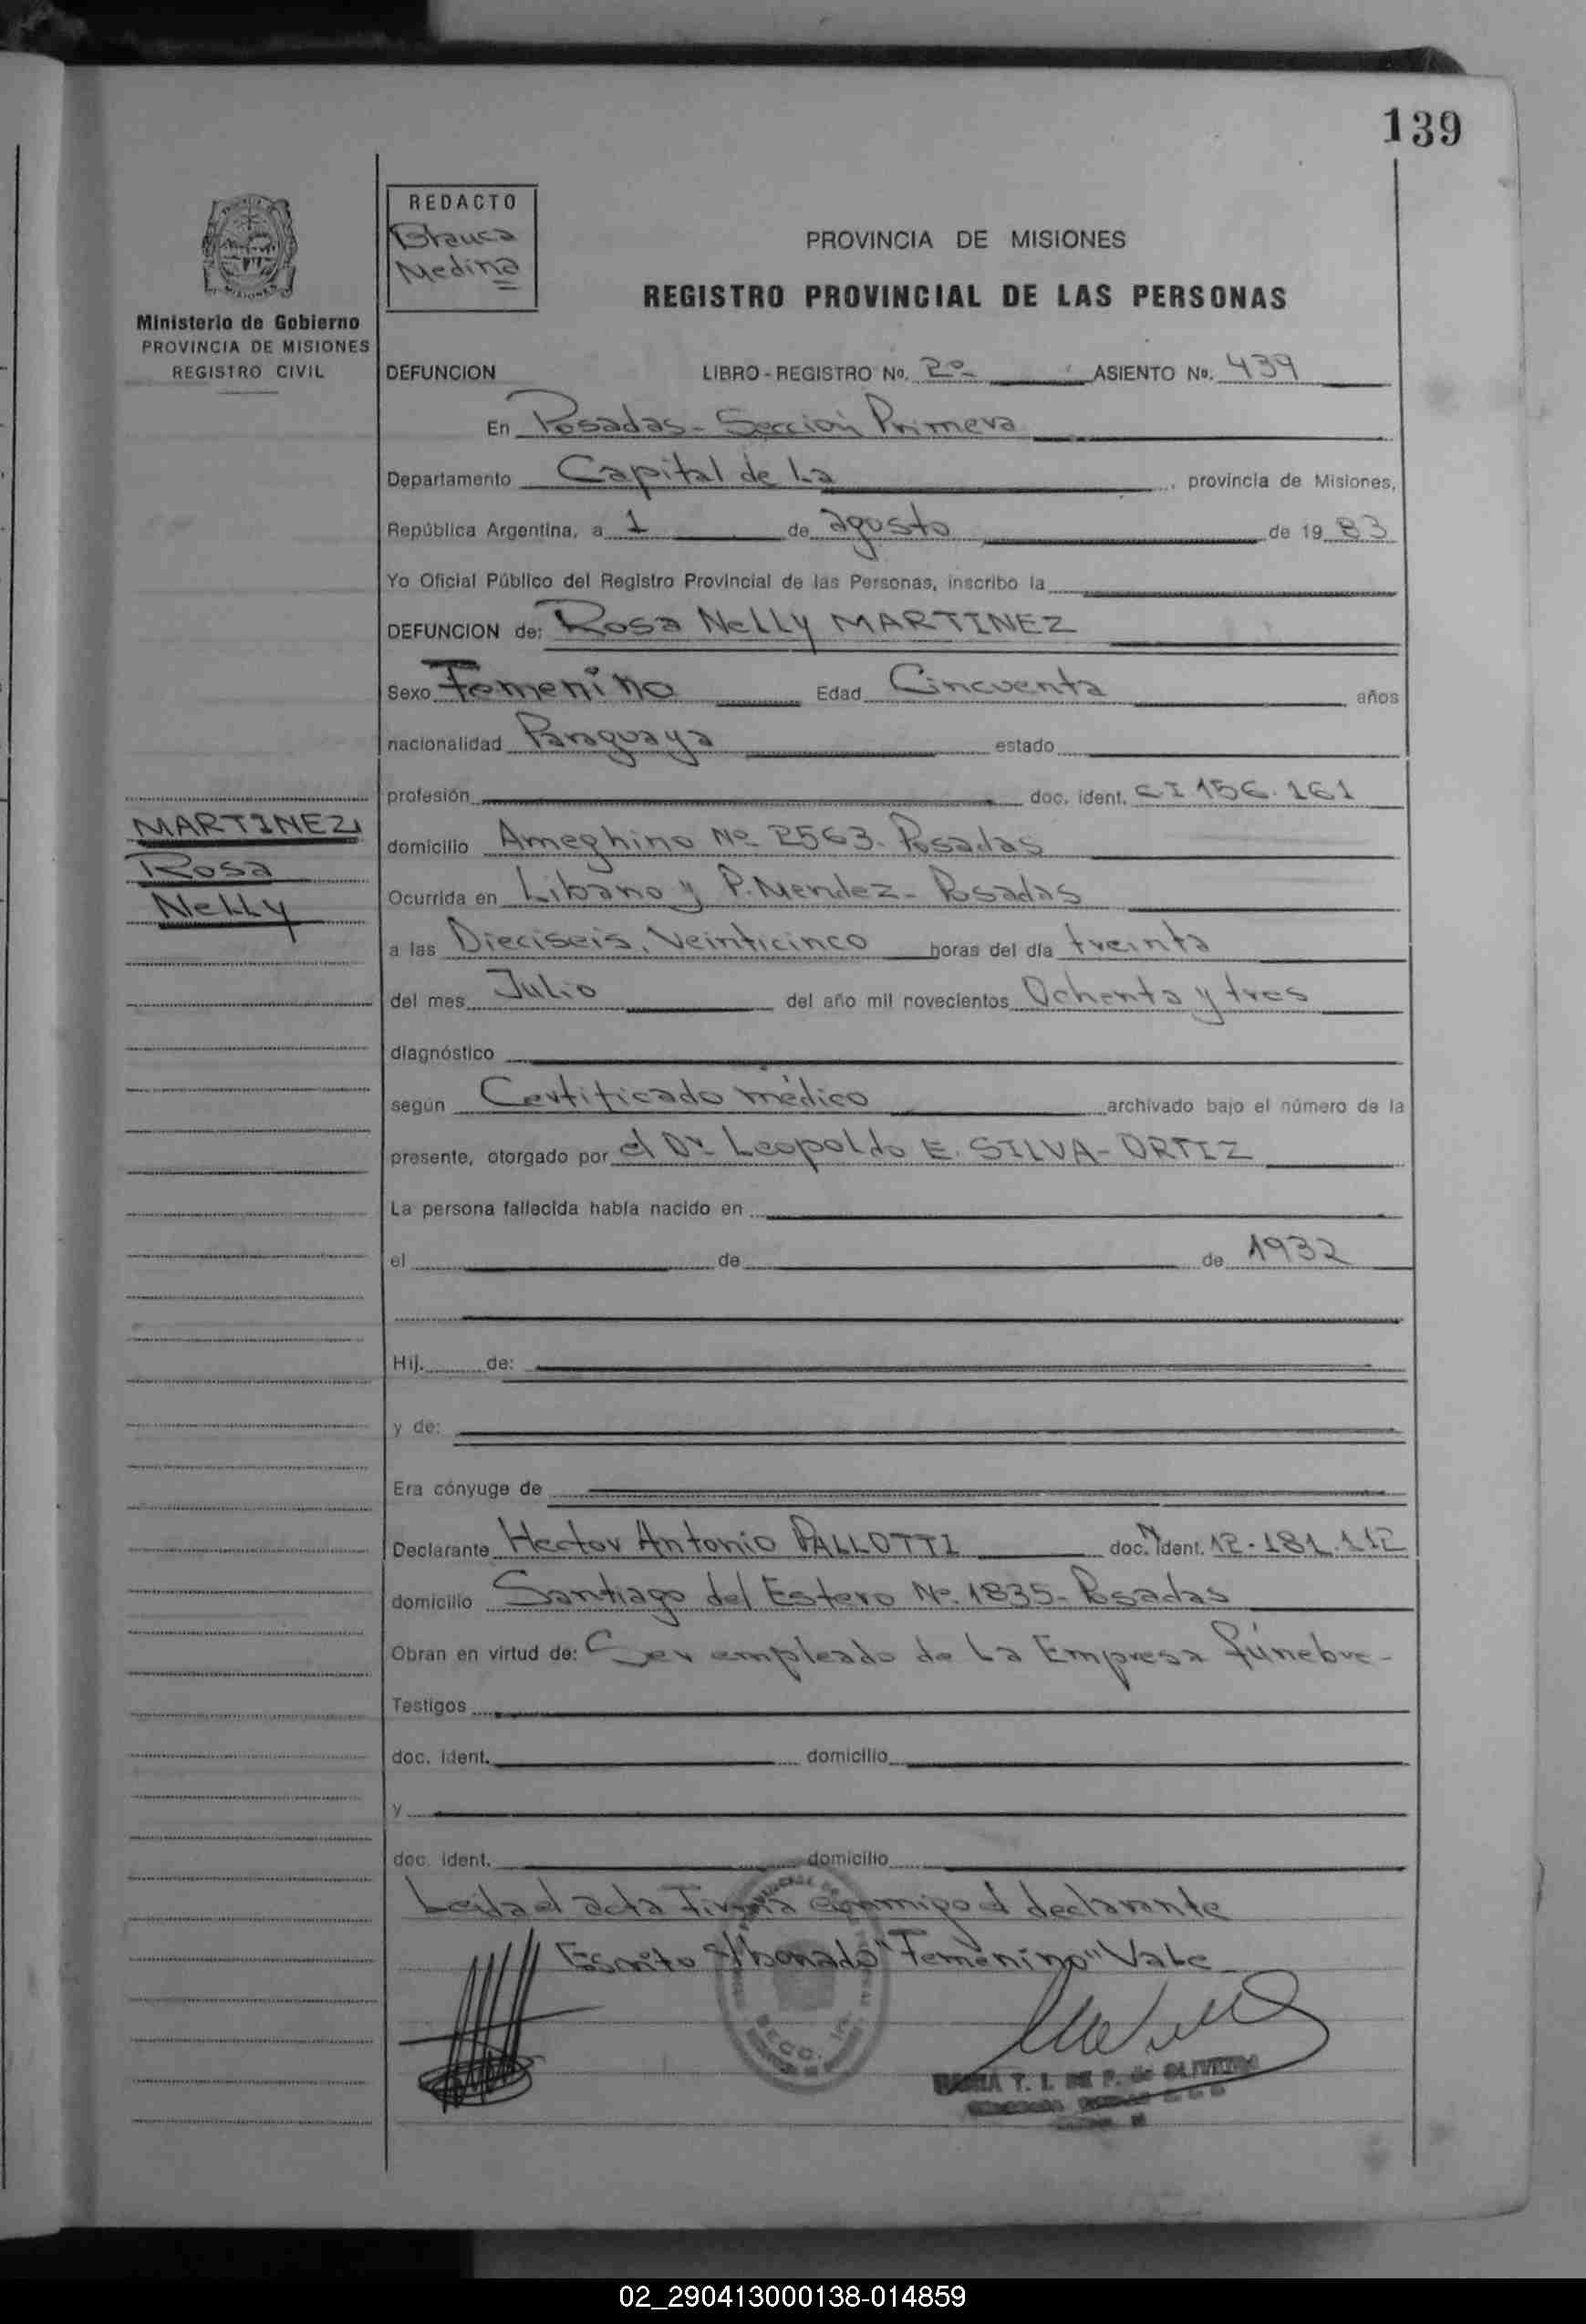 139
REDACTO
Blanca
Medina
PROVINCIA DE MISIONES
REGISTRO PROVINCIAL DE LAS PERSONAS
Ministerio de Gobierno
PROVINCIA DE MISIONES
REGISTRO CIVIL
DEFUNCION LIBRO - REGISTRO No. 2º ASIENTO No. 439
En Posadas - Sección Primera
Departamento Capital de La , provincia de Misiones,
República Argentina, a 1 de agosto de 19 83
Yo Oficial Público del Registro Provincial de las Personas, inscribo la
DEFUNCION de: Rosa Nelly MARTINEZ
Sexo Femenino Edad Cincuenta años
nacionalidad Paraguaya estado
profesión doc. ident. CI 156.161
MARTINEZ
Rosa
Nelly
domicilio Ameghino Nº 2563. Posadas
Ocurrida en Libano y P. Mendez - Posadas
a las Dieciseis, Veinticinco horas del día treinta
del mes Julio del año mil novecientos Ochenta y tres
diagnóstico
según Certificado médico archivado bajo el número de la
presente, otorgado por el Dr Leopoldo E. SILVA-ORTIZ
La persona fallecida había nacido en
el de de 1932
Hij. de:
y de:
Era cónyuge de
Declarante Hector Antonio PALLOTTI doc. N ident. 12.181.112
domicilio Santiago del Estero Nº 1835 - Posadas
Obran en virtud de: Ser empleado de La Empresa fúnebre -
Testigos
doc. ident. domicilio
y
doc. ident. domicilio
Leida el acta Firma conmigo el declarante
Escrito S/bonado "Femenino" Vale
SECC. 1a
MARIA T. I. DE P. de OLIVEIRA
02_290413000138-014859